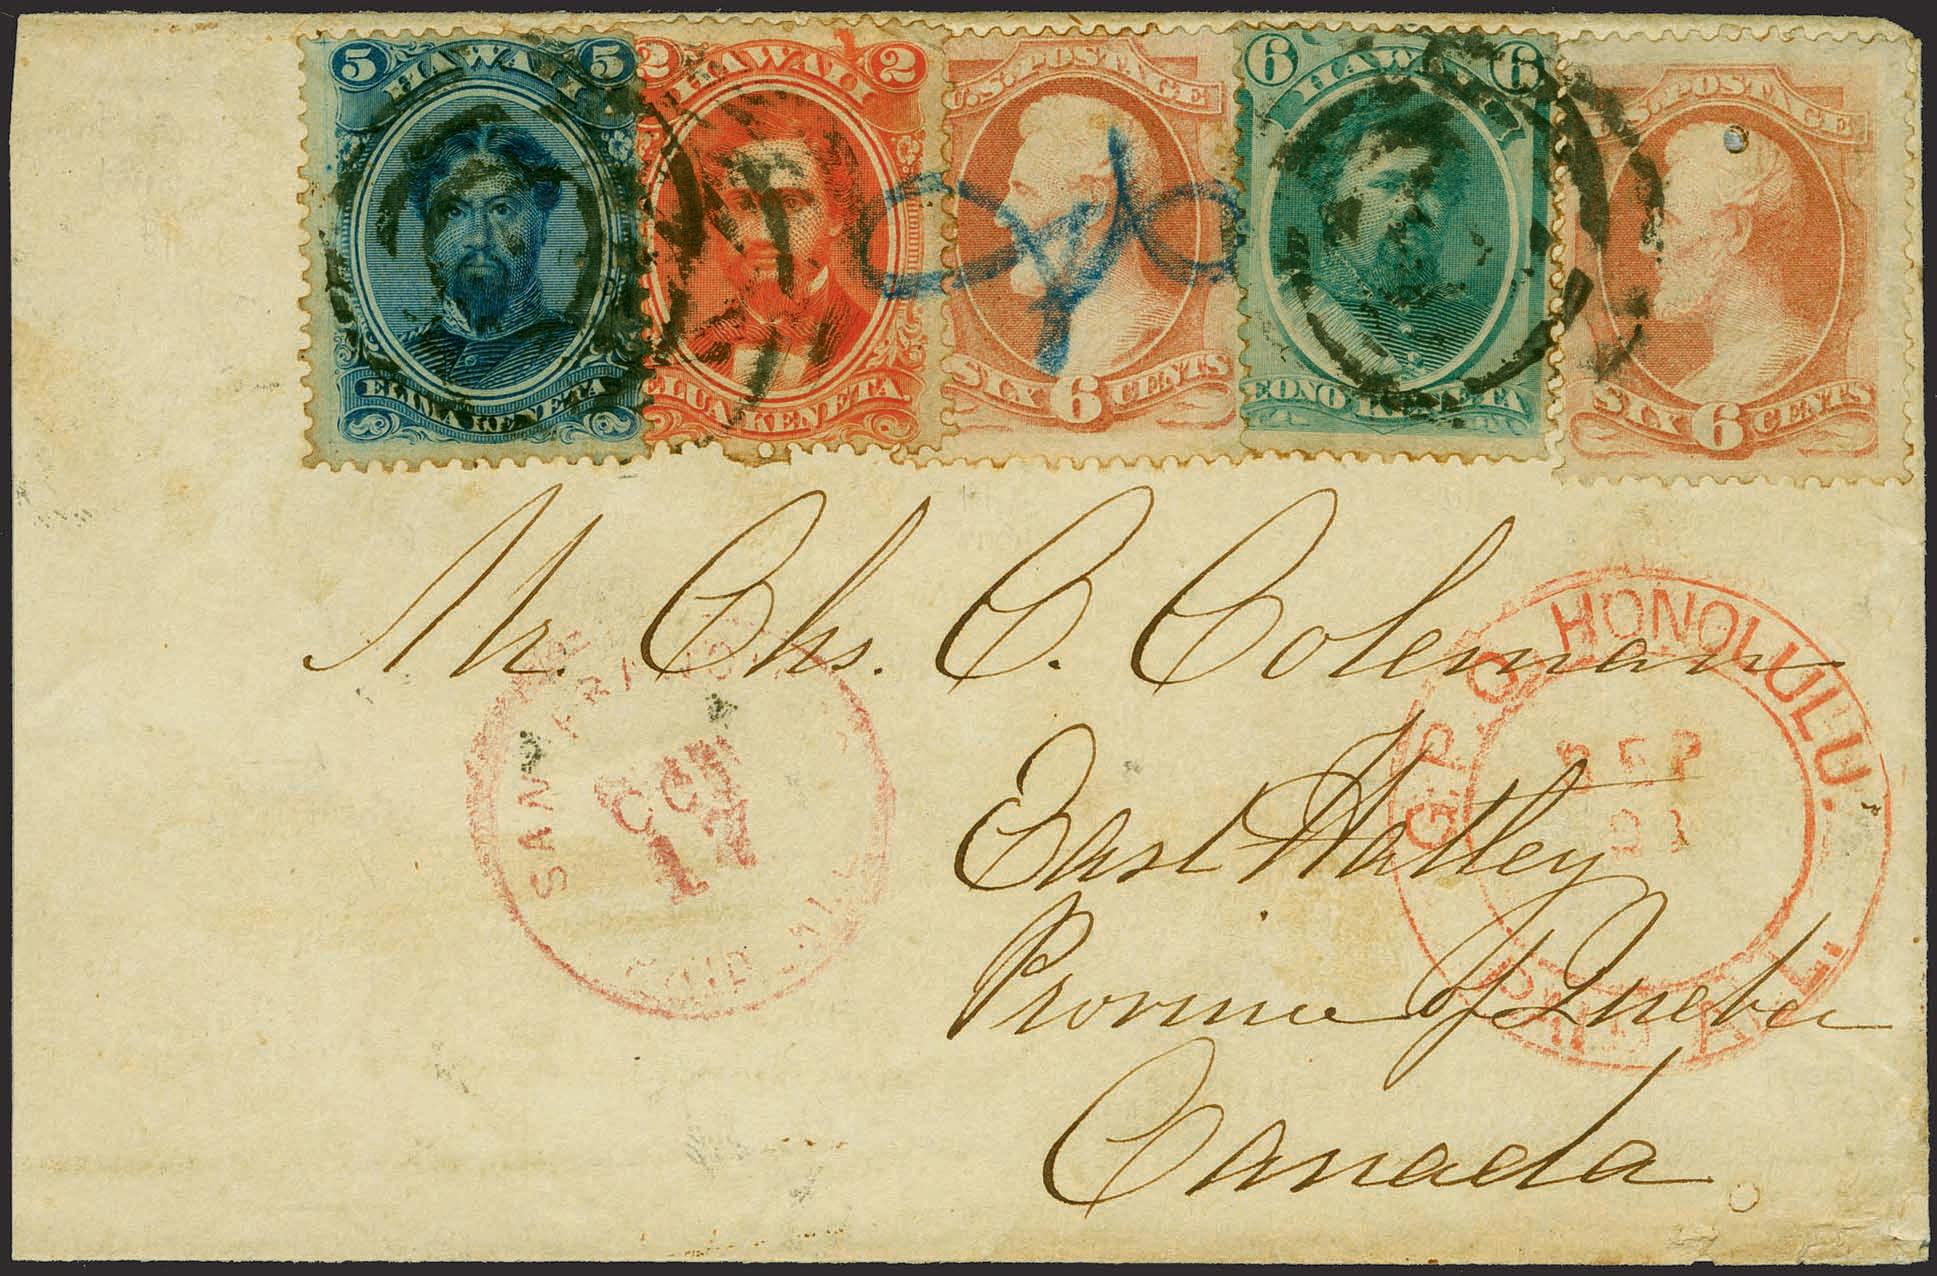 5 HAWAII 5
ELIMA KENETA
2 HAWAII 2
ELUA KENETA.
U.S. POSTAGE
SIX 6 CENTS
6 HAWAII 6
EONO KENETA
U.S. POSTAGE
SIX 6 CENTS
Mr. Chs. C. Coleman
East Hatley
Province of Quebec
Canada
SAN FRANCISCO
OCT
17
PAID ALL
G.P.O. HONOLULU.
SEP
PAID ALL.